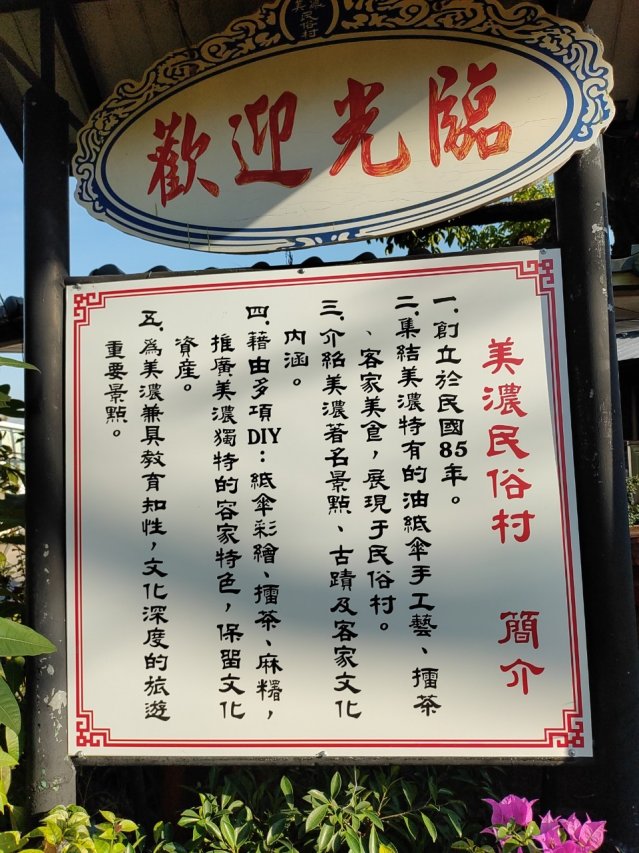 美濃民俗村
歡迎光臨
美濃民俗村 簡介
一. 創立於民國85年。
二. 集結美濃特有的油紙傘手工藝、擂茶
、客家美食，展現于民俗村。
三. 介紹美濃著名景點、古蹟及客家文化
內涵。
四. 藉由多項DIY：紙傘彩繪、擂茶、麻糬，
推廣美濃獨特的客家特色，保留文化
資產。
五. 為美濃兼具教育知性，文化深度的旅遊
重要景點。